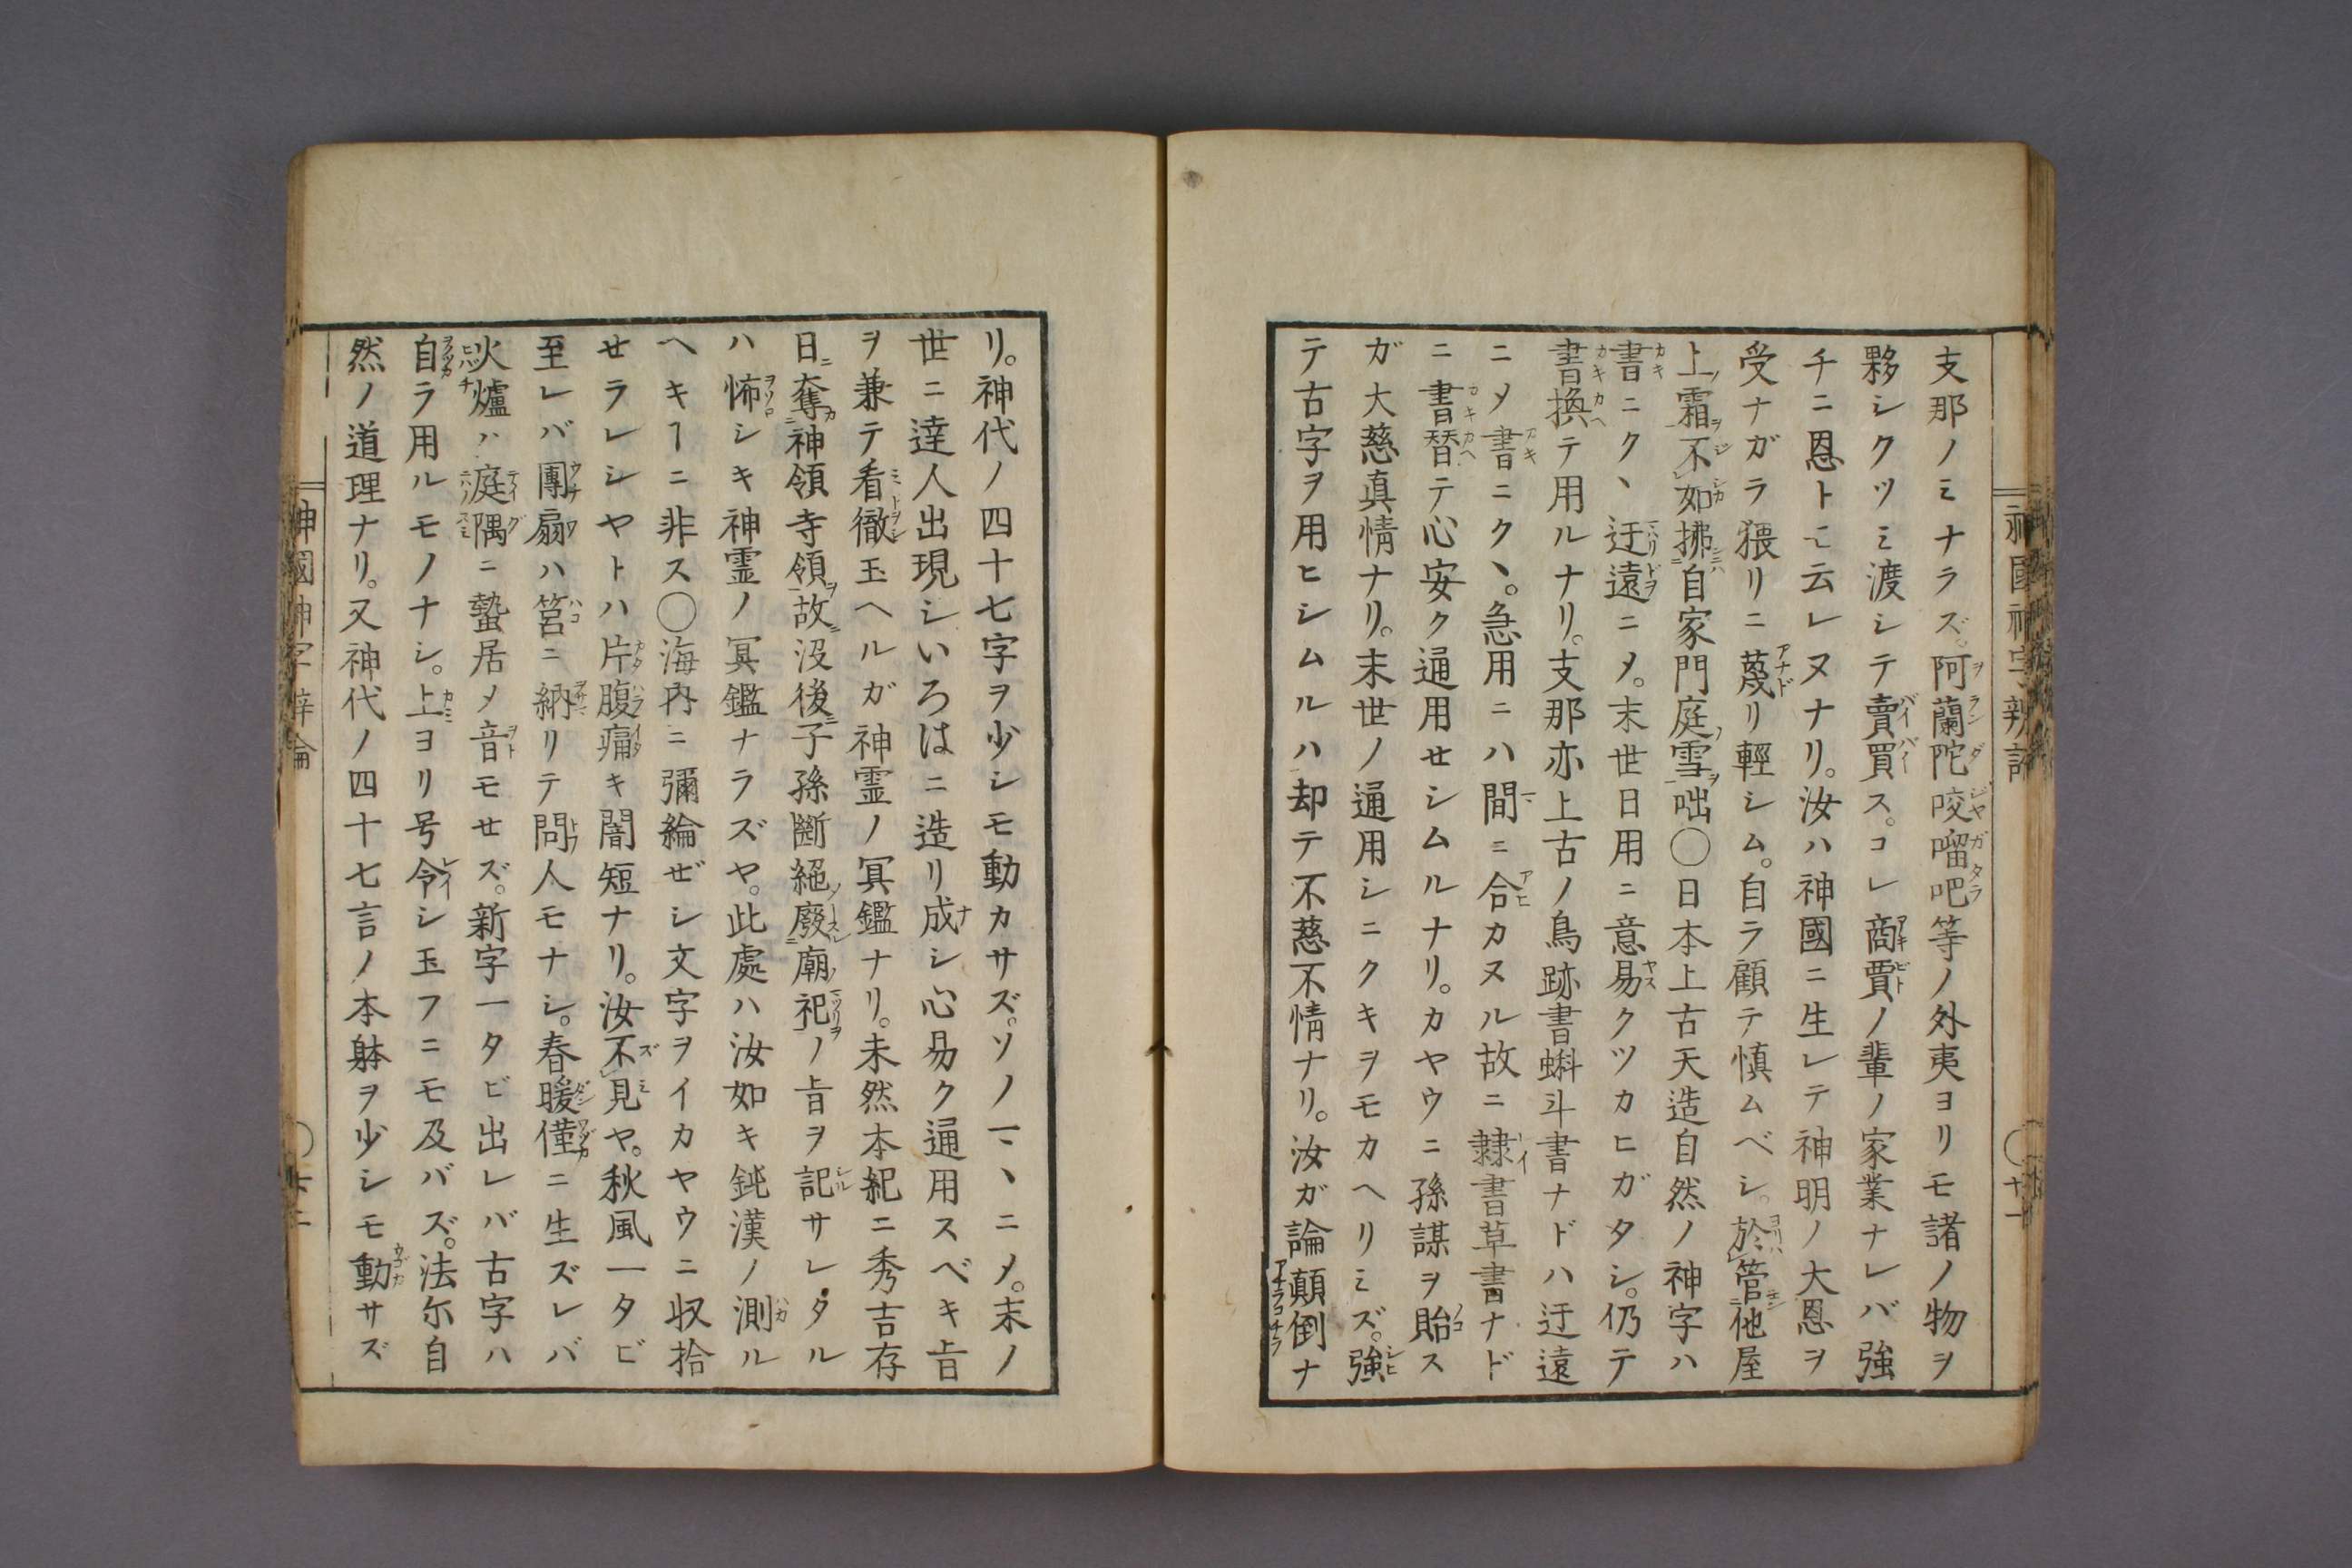 神國神字辨論
〇廿一
支那ノミナラズ。阿蘭陀咬𠺕吧等ノ外夷ヨリモ諸ノ物ヲ
夥シクツミ渡シテ賣買ス。コレ商賈ノ輩ノ家業ナレバ強
チニ恩トモ云レヌナリ。汝ハ神國ニ生レテ神明ノ大恩ヲ
受ナガラ猥リニ蔑リ輕シム。自ラ顧テ慎ムベシ。於管他屋
上霜不如拂自家門庭雪咄〇日本上古天造自然ノ神字ハ
書ニク丶迂遠ニメ。末世日用ニ意易クツカヒガタシ。仍テ
書換テ用ルナリ。支那亦上古ノ鳥跡書蝌斗書ナドハ迂遠
ニメ書ニク丶。急用ニハ間ニ合カヌル故ニ隷書草書ナド
ニ書替テ心安ク通用セシムルナリ。カヤウニ孫謀ヲ貽ス
ガ大慈真情ナリ。末世ノ通用シニクキヲモカヘリミズ。強
テ古字ヲ用ヒシムルハ却テ不慈不情ナリ。汝ガ論顛倒ナ
リ。神代ノ四十七字ヲ少シモ動カサズ。ソノマ丶ニメ。末ノ
世ニ達人出現シいろはニ造リ成シ心易ク通用スベキ旨
ヲ兼テ看徹玉ヘルガ神霊ノ冥鑑ナリ。未然本紀ニ秀吉存
日奪神領寺領故没後子孫斷絕廢廟祀ノ旨ヲ記サレタル
ハ怖シキ神霊ノ冥鑑ナラズヤ。此處ハ汝如キ鈍漢ノ測ル
ヘキヿニ非ス〇海内ニ彌綸ゼシ文字ヲイカヤウニ収拾
せラレシヤトハ片腹痛キ闇短ナリ。汝不見ヤ。秋風一タビ
至レバ團扇ハ筥ニ納リテ問人モナシ。春暖僅ニ生ズレバ
火爐ハ庭隅ニ蟄居メ音モせズ。新字一タビ出レバ古字ハ
自ラ用ルモノナシ。上ヨリ号令シ玉フニモ及バズ。法尓自
然ノ道理ナリ。又神代ノ四十七言ノ本躰ヲ少シモ動サズ
神國神字辨論
〇廿二